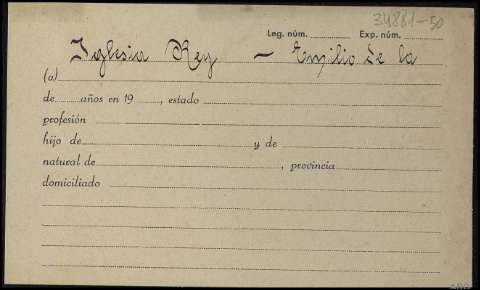 34881-50
Leg. núm. Exp. núm.
Iglesia Rey — Emilio de la
(a)
de años en 19 , estado
profesión
hijo de y de
natural de , provincia
domiciliado